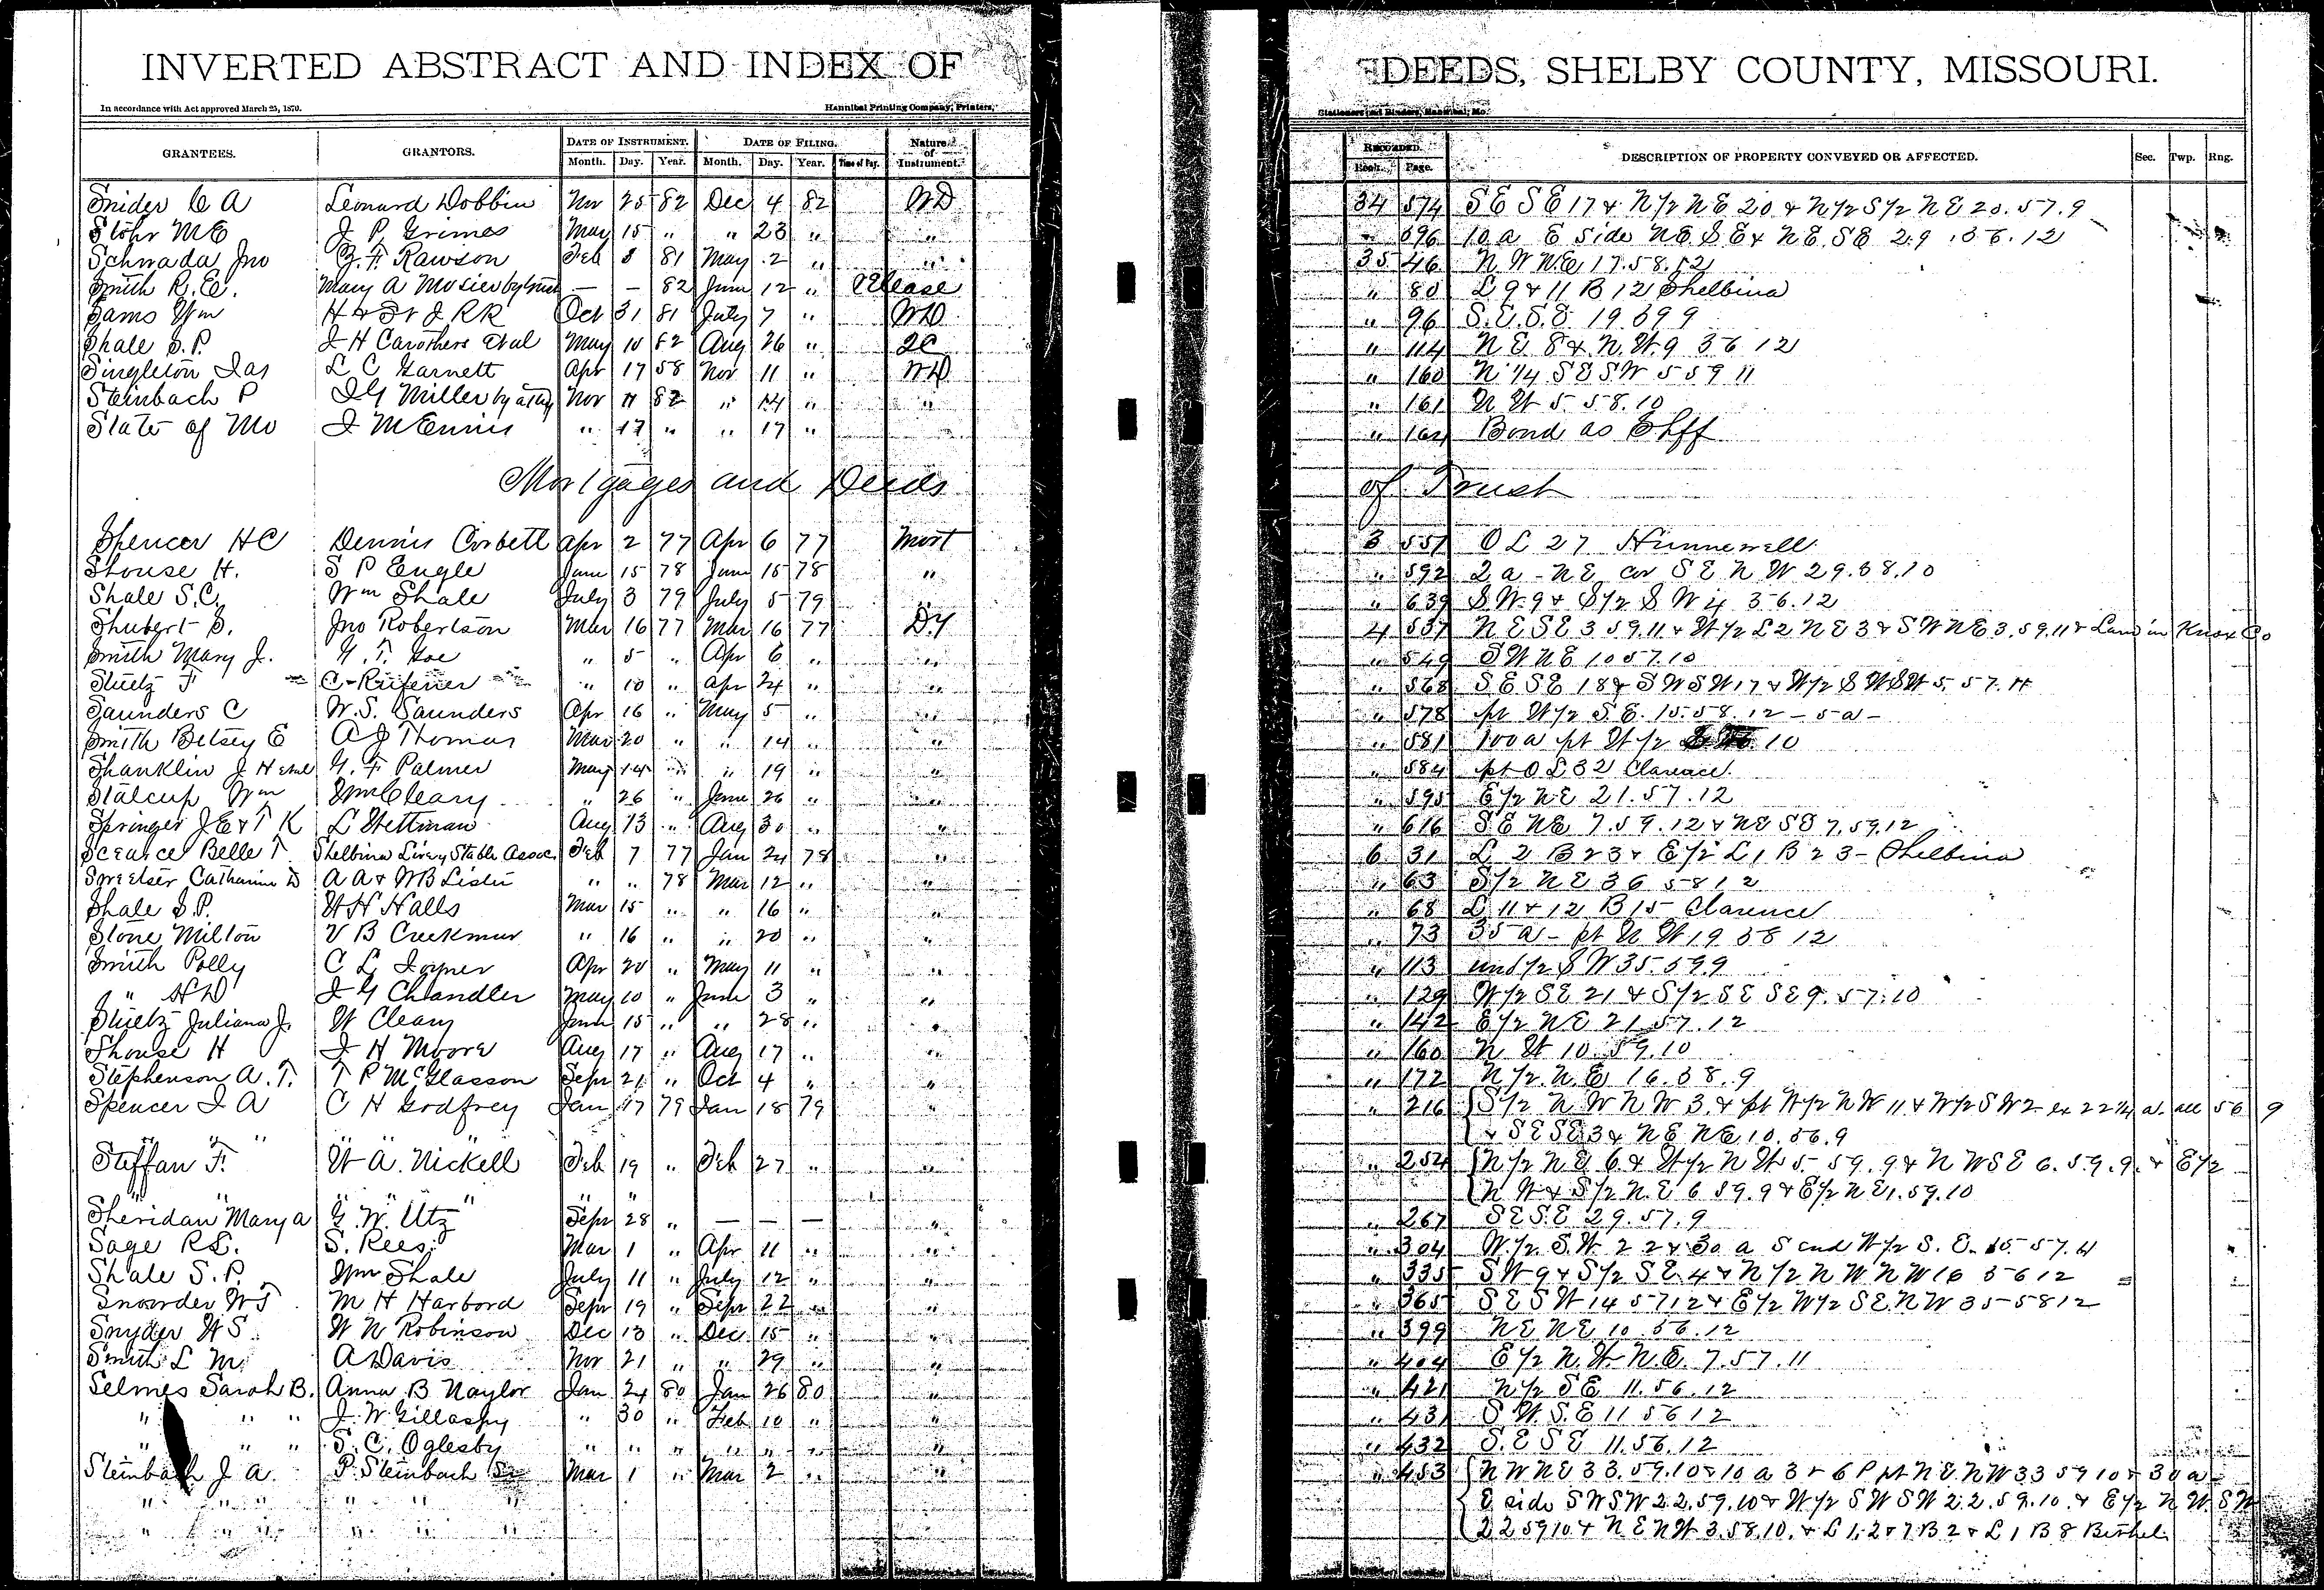 INVERTED ABSTRACT AND INDEX OF DEEDS, SHELBY COUNTY, MISSOURI.
In accordance with Act approved March 25, 1870. Hannibal Printing Company, Printers, Stationers and Binders, Hannibal, Mo.
GRANTEES. GRANTORS. DATE OF INSTRUMENT. DATE OF FILING. Nature of Instrument. RECORDED. DESCRIPTION OF PROPERTY CONVEYED OR AFFECTED. Sec. Twp. Rng.
Month. Day. Year. Month. Day. Year. Time of Day. Book. Page.
Snider C A Leonard Dobbin Nov 25 82 Dec 4 82 WD 34 574 S E S E 17 & N 1/2 N E 20 & N 1/2 S 1/2 N E 20.57.9
Stohr M E J P Grimes May 15 " " 23 " " " 596 10 a E side N E S E & N E S E 29.56.12
Schwada Jno Z. F. Rawson Feb 8 81 May 2 " " 35 46 N W N E 17.58.12
Smith R. E. Mary A Mosier by trust — — 82 June 12 " Release " 80 L 9 & 11 B 12 Shelbina
Sams Wm H & St J RR Oct 31 81 July 7 " WD " 96 S. E. S. E. 19.59 9
Shale S. P. J H Carothers et al May 10 82 Aug 26 " QC " 114 N E 8 & N. W. 9 56 12
Singleton Jas L C Garnett Apr 17 58 Nov 11 " WD " 160 N 1/4 S E S W 5 59 11
Steinbach P J G Miller by atty Nov 11 82 " 14 " " " 161 N W 5 58.10
State of Mo J M Ennis " 17 " " 17 " " 164 Bond as Shff
Mortgages and Deeds of Trust
Spencer H C Dennis Corbett Apr 2 77 Apr 6 77 Mort 3 551 O L 27 Hunnewell
Shouse H. S P Engle June 15 78 June 15 78 " " 592 2 a - N E cor S E N W 29.58.10
Shale S. C. Wm Shale July 3 79 July 5 79 " " 639 S W 9 & S 1/2 S W 4 56.12
Shubert S. Jno Robertson Mar 16 77 Mar 16 77 D.T 4 537 N E S E 3 59.11 & W 1/2 L 2 N E 3 & S W N E 3.59.11 & Land in Knox Co
Smith Mary J. G. T. Goe " 5 " Apr 6 " " " 549 S W N E 10 57.10
Stuetz F C Rufener " 10 " Apr 24 " " " 568 S E S E 18 & S W S W 17 & W 1/2 S W S W 5.57.11
Saunders C W. S. Saunders Apr 16 " May 5 " " " 578 pt W 1/2 S. E. 15.58.12 - 5 a -
Smith Betsey E A J Thomas Mar 20 " " 14 " " " 581 100 a pt W 1/2 10
Shanklin J H et al G. F. Palmer May 14 " " 19 " " " 584 pt O L 32 Clarence
Stalcup Wm Wm Cleary " 26 " June 26 " " " 595 E 1/2 N E 21.57.12
Springer J E & T K L Stettman Aug 13 " Aug 30 " " " 616 S E N E 7.59.12 & N E S E 7.59.12
Scearce Belle T Shelbina Livery Stable Assoc. Feb 7 77 Jan 24 78 " 6 31 L 2 B 23 & E 1/2 L 1 B 23 - Shelbina
Smelser Catharine D A A & W B Lister " " 78 Mar 12 " " " 63 S 1/2 N E 36 58 12
Shale S. P. W H Halls Mar 15 " " 16 " " " 68 L 11 & 12 B 15 Clarence
Stone Milton V B Creekmur " 16 " " 20 " " " 73 35 a - pt N W 19 58 12
Smith Polly C L Joyner Apr 20 " May 11 " " " 113 und 1/2 S W 35.59.9
" H D J G Chandler May 10 " June 3 " " " 129 W 1/2 S E 21 & S 1/2 S E S E 9.57.10
Stuetz Juliana J. W Cleary June 15 " " 28 " " " 142 E 1/2 N E 21.57.12
Shouse H J H Moore Aug 17 " Aug 17 " " " 160 N W 10.59.10
Stephenson A. T. T P McGlasson Sepr 21 " Oct 4 " " " 172 N 1/2 N. E 16.58.9
Spencer J A C H Godfrey Jan 17 79 Jan 18 79 " " 216 S 1/2 N W N W 3 & pt W 1/2 N W 11 & W 1/2 S W 2 ex 22 1/4 a. all 56 9
" " " & S E S E 3 & N E N E 10.56.9
Steffan F. W A. Nickell Feb 19 " Feb 27 " " " 254 N 1/2 N E 6 & W 1/2 N W 5 59.9 & N W S E 6.59.9. & E 1/2
" " " " " " N W & S 1/2 N. E 6 59.9 & E 1/2 N E 1.59.10
Sheridan Mary A G. W. Utz Sepr 28 " — — — " " 267 S E S. E 29.57.9
Sage R S. S. Rees Mar 1 " Apr 11 " " " 304 W 1/2 S. W 22 & 30 a S end W 1/2 S. E. 15 57.11
Shale S. P. Wm Shale July 11 " July 12 " " " 335 S W 9 & S 1/2 S E 4 & N 1/2 N W N W 16 56 12
Snowder W T M H Harbord Sepr 19 " Sepr 22 " " " 365 S E S W 14 57 12 & E 1/2 W 1/2 S E N W 35-58 12
Snyder W S W N Robinson Dec 13 " Dec 15 " " " 399 N E N E 10 56.12
Smith L M A Davis Nov 21 " " 29 " " " 404 E 1/2 N. W N. E. 7.57.11
Selmes Sarah B. Anna B Naylor Jan 24 80 Jan 26 80 " " 421 N 1/2 S E 11.56.12
" " " J. W Gillaspy " 30 " Feb 10 " " " 431 S W S. E 11 56 12
" " " S. C. Oglesby " " " " " " " " 432 S. E S E 11.56.12
Steinbach J A. P Steinbach Sr Mar 1 " Mar 2 " " " 453 N W N E 33.59.10 & 10 a 3 & 6 P pt N E N W 33 59 10 & 30 a
" " " " " " E side S W S W 22.59.10 & W 1/2 S W S W 22.59.10. & E 1/2 N W S W
" " " " " " 22 59 10 & N E N W 3.58.10. & L 1. 2 & 7 B 2 & L 1 B 8 Bethel